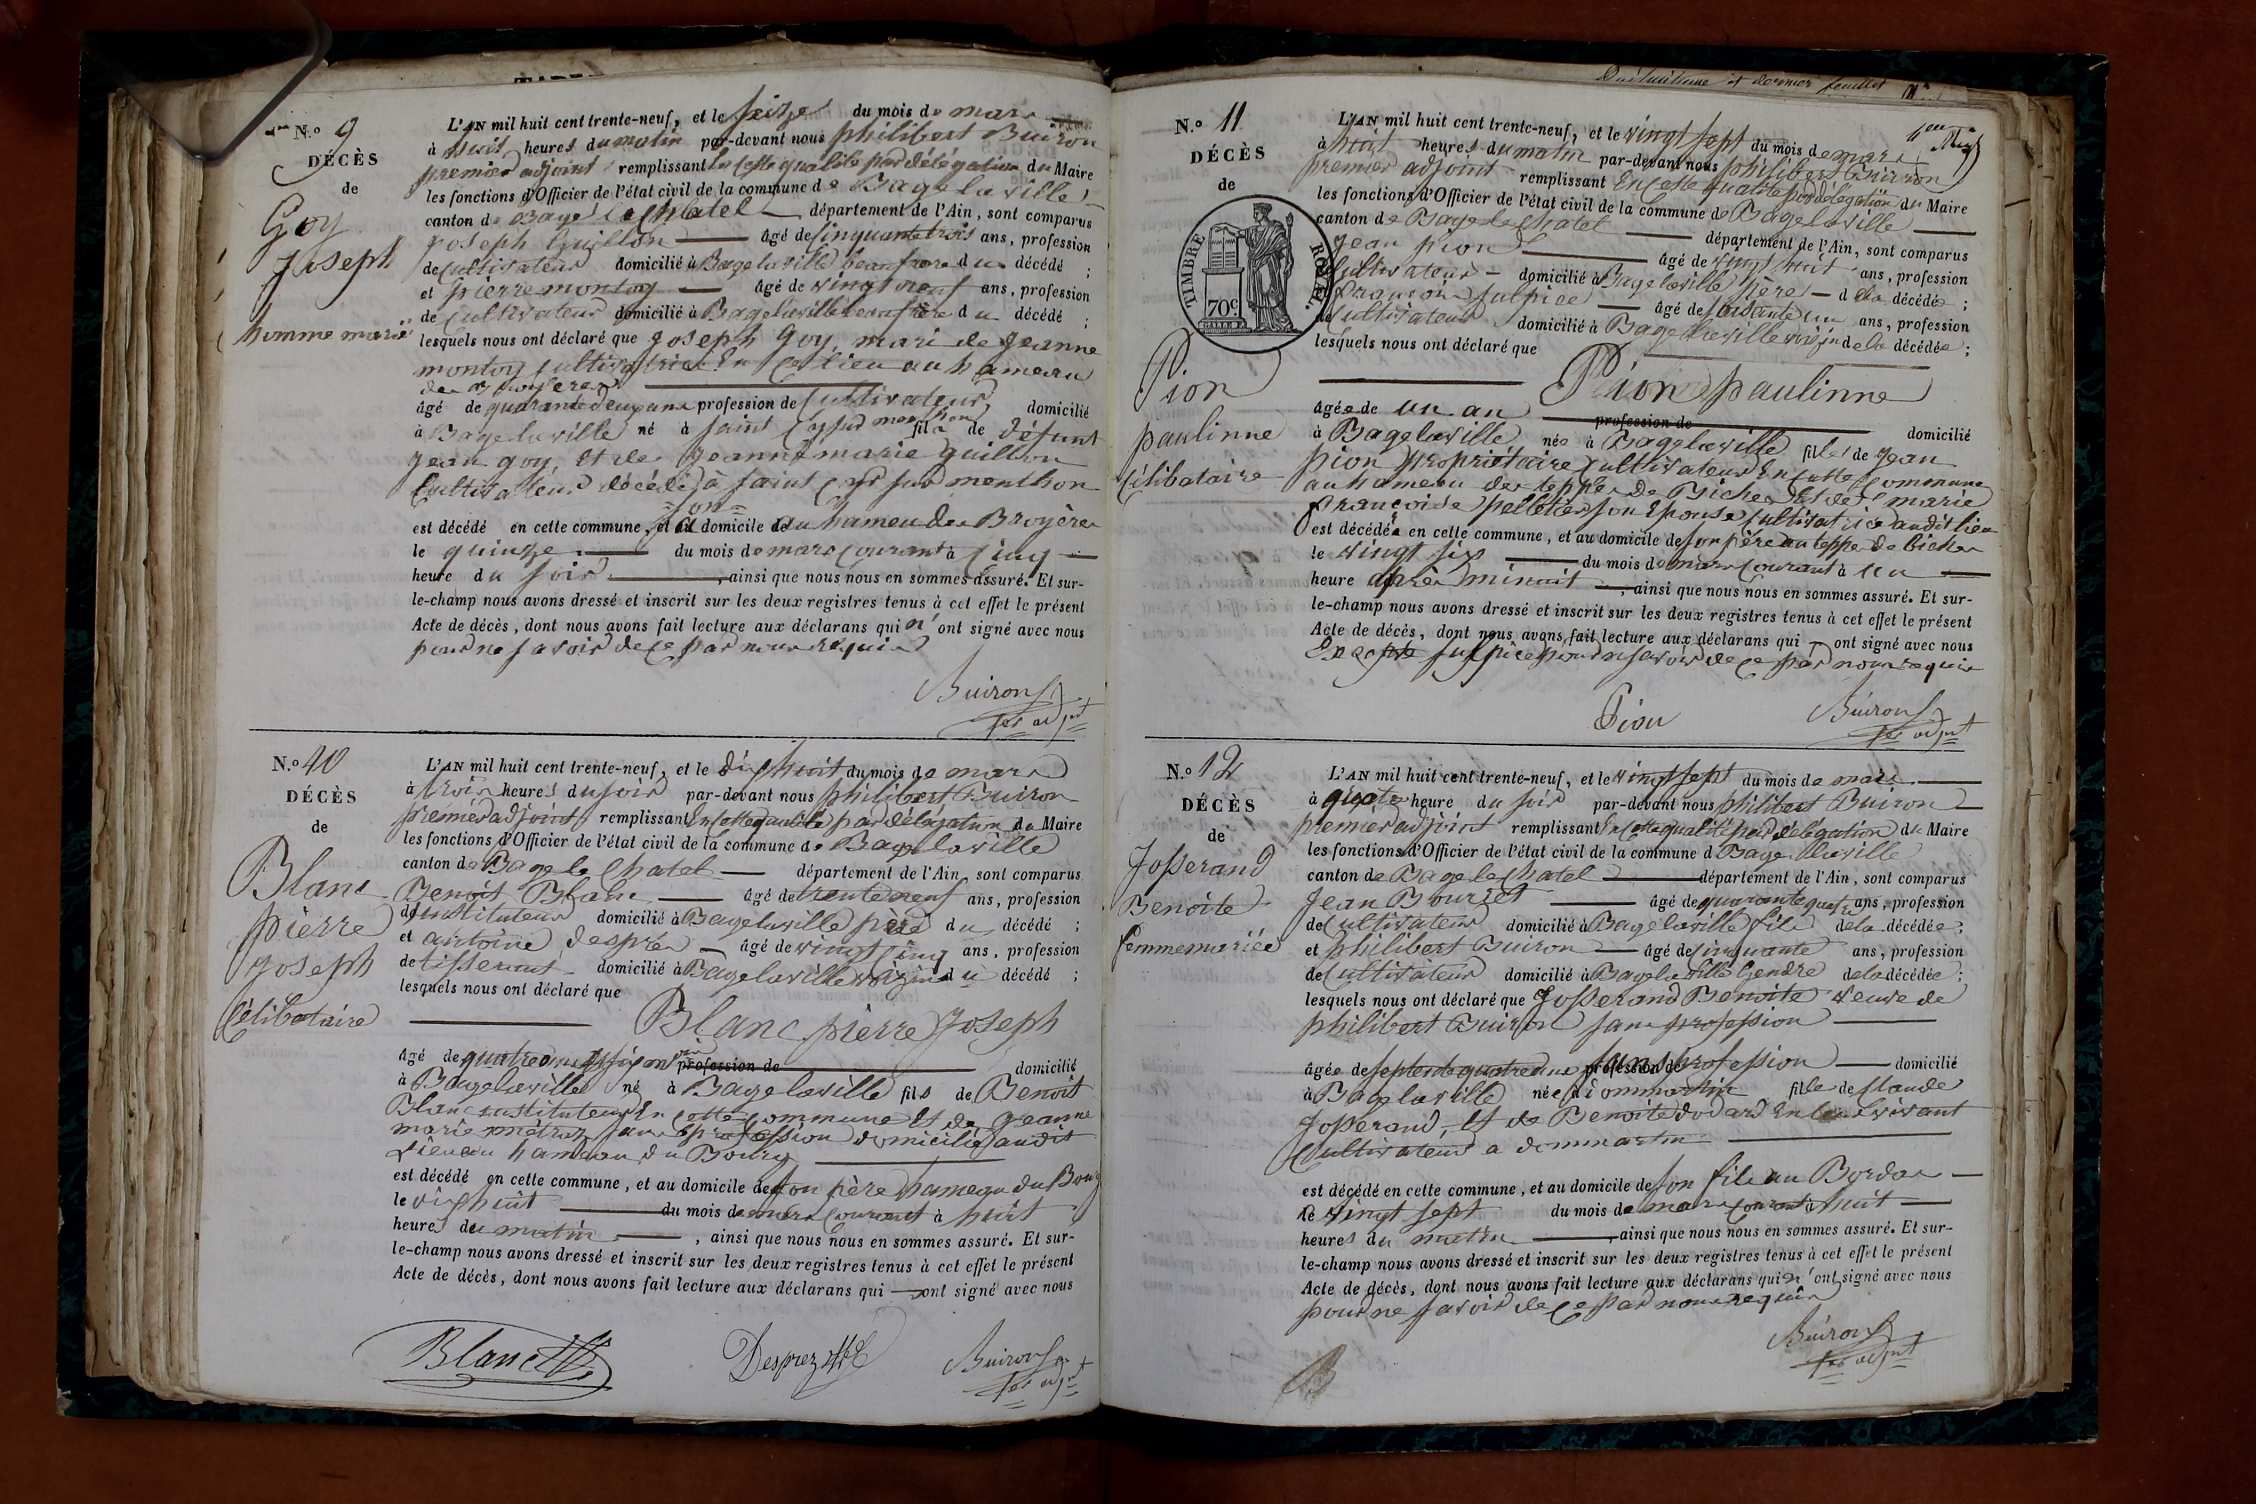 N.o 9
DÉCÈS
de
Goy
Joseph
homme marié
L'AN mil huit cent trente-neuf, et le seize du mois de mars
à huit heures du matin par-devant nous philibert Buiron
premier adjoint remplissant en cette qualité par délégation du Maire
les fonctions d'Officier de l'état civil de la commune de Bagé la ville
canton de Bagé le Chatel département de l'Ain, sont comparus
Joseph Guillon âgé de cinquante trois ans, profession
de Cultivateur domicilié à Bagé la ville beaufrere du décédé ;
et pierre montoy âgé de vingt neuf ans, profession
de Cultivateur domicilié à Bagé la ville beaufrère du décédé ;
lesquels nous ont déclaré que Joseph Goy, mari de Jeanne
montoy Cultivatrice En ce lieu au hameau
des Broyeres
âgé de quarante deux ans profession de Cultivateur domicilié
à Bagé la ville né à saint Cyr sur menthon fils de défunt
Jean goy, et de Jeanne marie Guillon
Cultivateurs décédés à saint Cyr sur menthon
est décédé en cette commune, et au domicile au hameau des Broyères
le quinze du mois de mars Courant à Cinq
heure du soir, ainsi que nous nous en sommes assuré. Et sur-
le-champ nous avons dressé et inscrit sur les deux registres tenus à cet effet le présent
Acte de décès, dont nous avons fait lecture aux déclarans qui n'ont signé avec nous
pour ne savoir de ce par nous requis
Buiron
1er adjnt
N.o 10
DÉCÈS
de
Blanc
pierre
Joseph
Célibataire
L'AN mil huit cent trente-neuf, et le dix huit du mois de mars
à trois heures du soir par-devant nous philibert Buiron
premier adjoint remplissant En cette qualité par délégation du Maire
les fonctions d'Officier de l'état civil de la commune de Bagé la ville
canton de Bagé le Chatel département de l'Ain, sont comparus
Benoit Blanc âgé de trente neuf ans, profession
d'instituteur domicilié à Bagé la ville père du décédé ;
et antoine després âgé de vingt Cinq ans, profession
de tisserant domicilié à Bagé la ville voizin du décédé ;
lesquels nous ont déclaré que
Blanc pierre Joseph
âgé de quatre ans profession de domicilié
à Bagé la ville né à Bagé la ville fils de Benoit
Blanc instituteur En cette Commune Et de Jeanne
marie métras sans profession domiciliés audit
Lieu au hameau du Bourg
est décédé en cette commune, et au domicile de son père hameau du Bourg
le dix huit du mois de mars Courant à huit
heures du matin, ainsi que nous nous en sommes assuré. Et sur-
le-champ nous avons dressé et inscrit sur les deux registres tenus à cet effet le présent
Acte de décès, dont nous avons fait lecture aux déclarans qui ont signé avec nous
Blanc Desprez Buiron
1er adjnt
Quatrieme et dernier feuillet
N.o 11
DÉCÈS
de
TIMBRE ROYAL
70c
Pion
paulinne
Célibataire
L'AN mil huit cent trente-neuf, et le vingt sept du mois de mars
à huit heures du matin par-devant nous philibert Buiron
premier adjoint remplissant En cette qualité par délégation du Maire
les fonctions d'Officier de l'état civil de la commune de Bagé la ville
canton de Bagé le Chatel département de l'Ain, sont comparus
Jean pion âgé de vingt huit ans, profession
Cultivateur domicilié à Bagé la ville père de la décédée ;
françois sulpice âgé de soixante un ans, profession
de Cultivateur domicilié à Bagé la ville voizin de la décédée ;
lesquels nous ont déclaré que
Pion paulinne
âgée de un an profession de domicilié
à Bagé la ville née à Bagé la ville fille de Jean
pion propriétaire Cultivateur En cette Commune
au hameau des teppes de Biches Et de marie
françoise pelletier son Epouse Cultivatrice audit lieu
est décédée en cette commune, et au domicile de son père au teppe de biches
le vingt six du mois de mars Courant à un
heure après minuit, ainsi que nous nous en sommes assuré. Et sur-
le-champ nous avons dressé et inscrit sur les deux registres tenus à cet effet le présent
Acte de décès, dont nous avons fait lecture aux déclarans qui ont signé avec nous
Excepté sulpice pour ne savoir de ce par nous requis
Pion Buiron
1er adjnt
N.o 12
DÉCÈS
de
Josserand
Benoite
femme mariée
L'AN mil huit cent trente-neuf, et le vingt sept du mois de mars
à quatre heure du soir par-devant nous philibert Buiron
premier adjoint remplissant En cette qualité par délégation du Maire
les fonctions d'Officier de l'état civil de la commune d Bagé la ville
canton de Bagé le Chatel département de l'Ain, sont comparus
Jean Bouriet âgé de quarante quatre ans, profession
de Cultivateur domicilié à Bagé la ville fils de la décédée ;
et philibert Buiron âgé de Cinquante ans, profession
de Cultivateur domicilié à Bagé la ville Gendre de la décédée ;
lesquels nous ont déclaré que Josserand Benoite veuve de
philibert Buiron sans profession
âgée de septente quatre ans profession de sans profession domicilié
à Bagé la ville née à dommartin fille de Claude
Josserand, Et de Benoite dodard En leur vivant
Cultivateurs a dommartin
est décédée en cette commune, et au domicile de son fils au Bordas
le vingt sept du mois de mars Courant à huit
heures du matin, ainsi que nous nous en sommes assuré. Et sur-
le-champ nous avons dressé et inscrit sur les deux registres tenus à cet effet le présent
Acte de décès, dont nous avons fait lecture aux déclarans qui n'ont signé avec nous
pour ne savoir de ce par nous requis
Buiron
1er adjnt